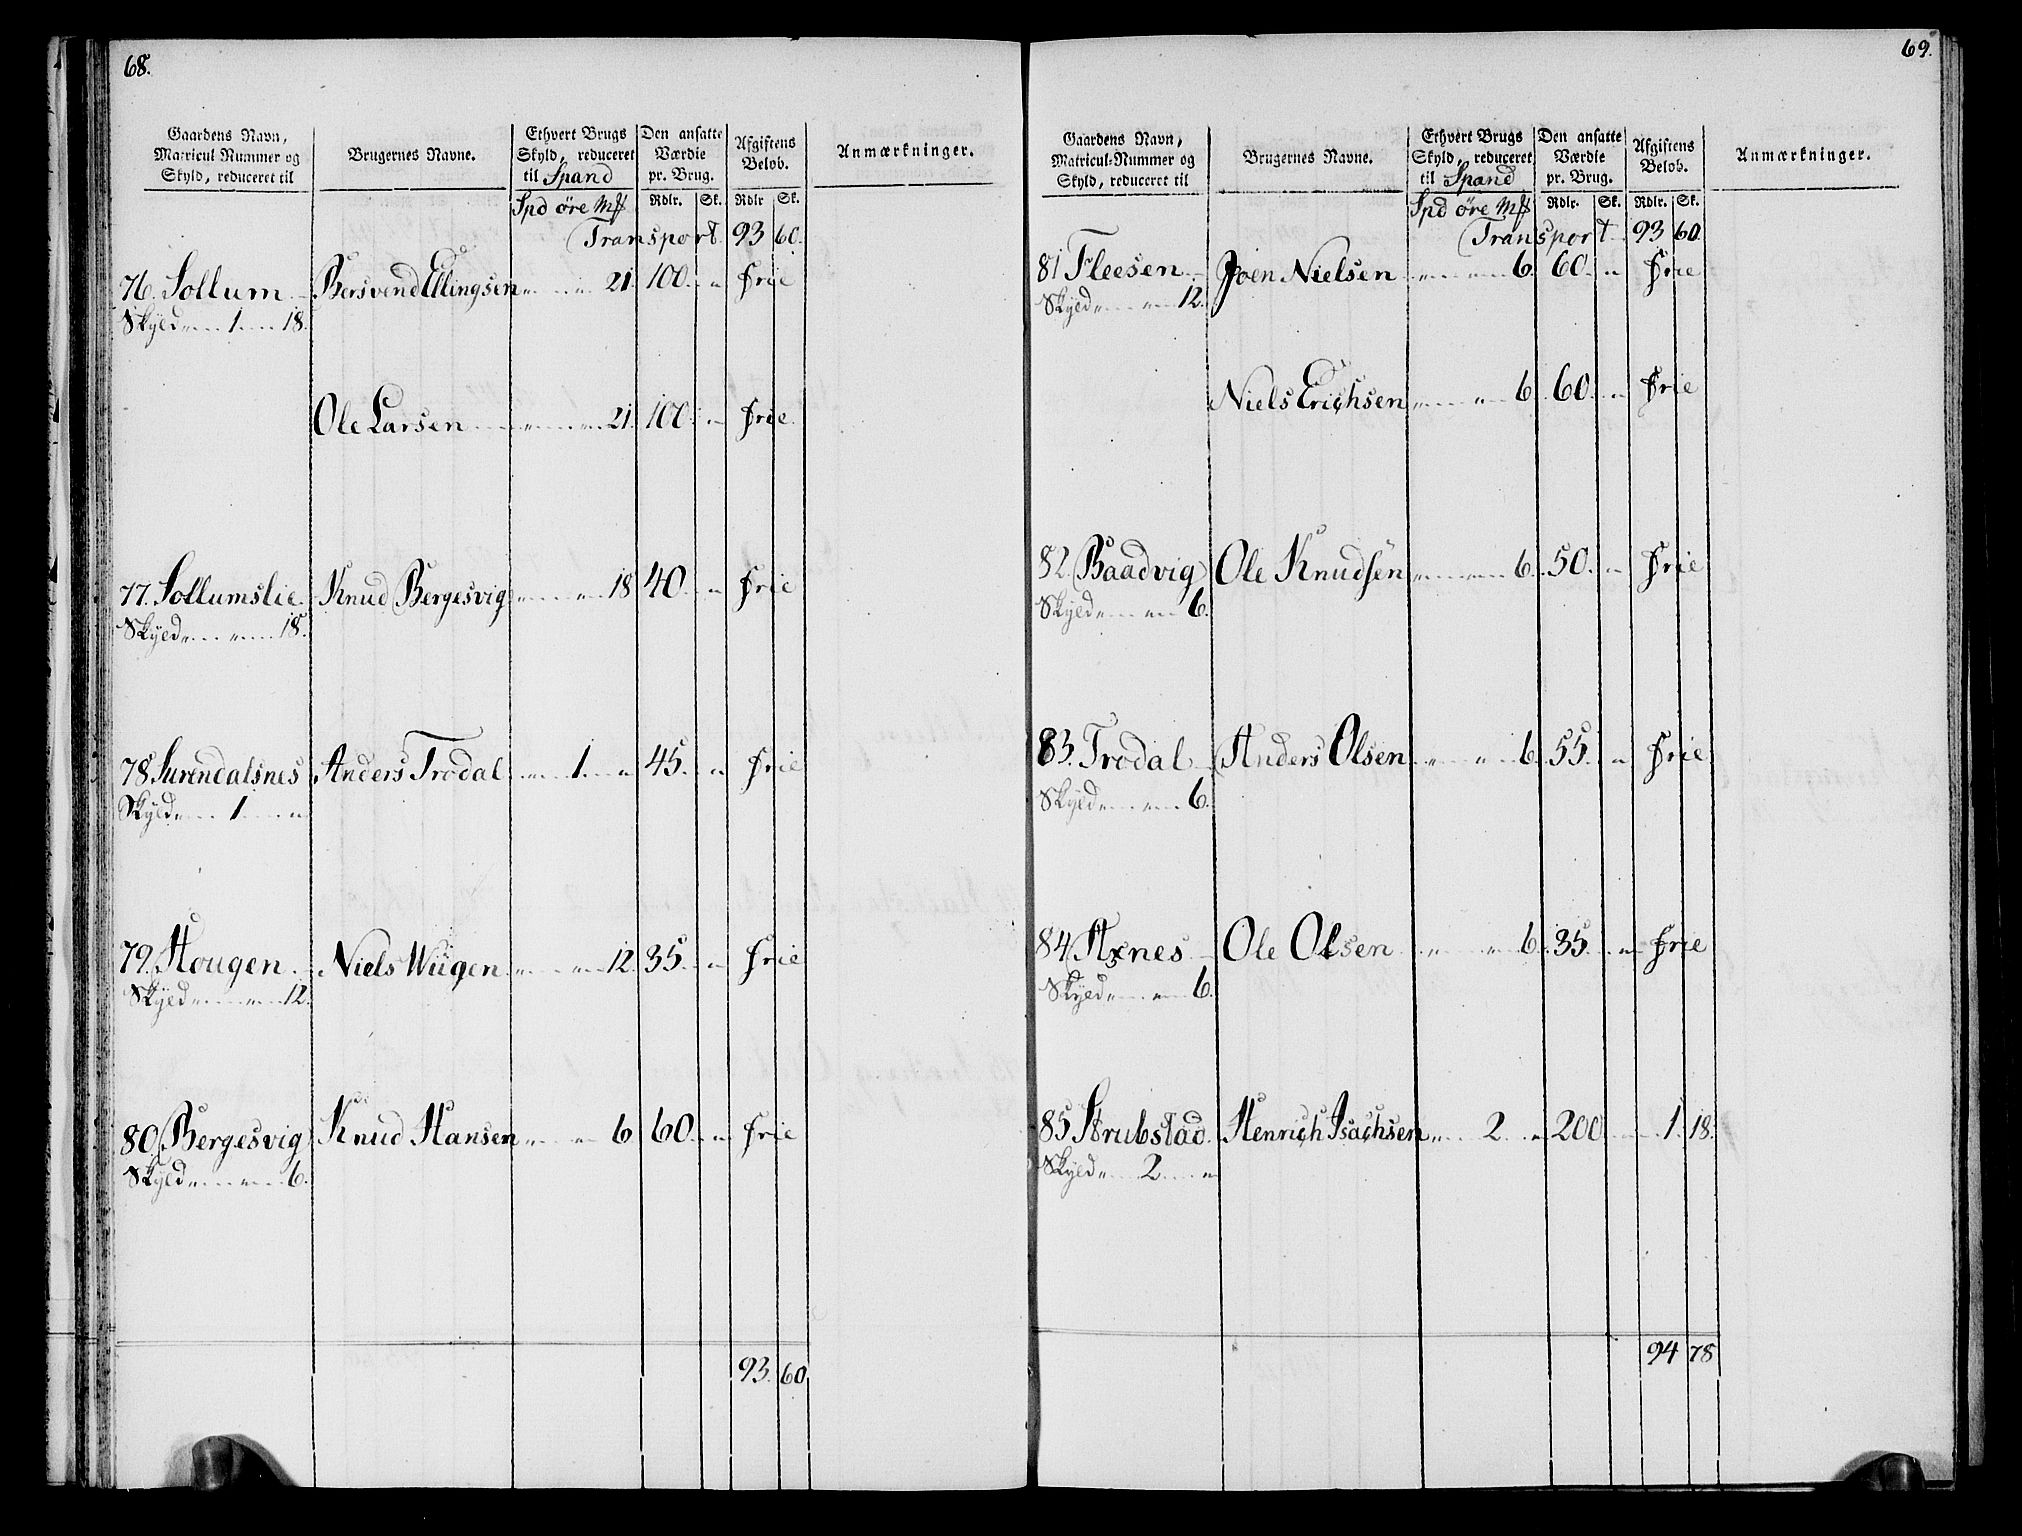 68.
Gaardens Navn, Matricul Nummer og Skyld, reduceret til
Brugernes Navne.
Ethvert Brugs Skyld, reduceret til Spand
Den ansatte Værdie pr. Brug.
Afgiftens Beløb.
Anmærkninger.
Spd øre Mk Rdlr. Sk. Rdlr Sk.
Transport 93 60.
76. Sollum Bersvend Ellingsen " " 21. 100. " frie
Skyld " 1 18.
Ole Larsen " " 21. 100. " frie
77. Sollumslie Knud Bergesvig " " 18 40. " frie
Skyld " " 18.
78. Surendalsnes Anders Trodal " 1. " 45. " frie
Skyld " 1 "
79. Hougen Niels Wiigen " " 12. 35. " frie
Skyld " " 12.
80. Bergesvig Knud Hansen " " 6 60. " frie
Skyld " " 6.
93. 60
69.
Gaardens Navn, Matricul-Nummer og Skyld, reduceret til
Brugernes Navne.
Ethvert Brugs Skyld, reduceret til Spand
Den ansatte Værdie pr. Brug.
Afgiftens Beløb.
Anmærkninger.
Spd øre Mk Rdlr. Sk. Rdlr. Sk.
Transport 93 60.
81 Fleesen Joen Nielsen " " 6. 60. " frie
Skyld " " 12.
Niels Erichsen " " 6 60. " frie
82. Baadvig Ole Knudsen " " 6. 50. " frie
Skyld " " 6.
83. Trodal Anders Olsen " " 6. 55. " frie
Skyld " " 6.
84 Axnes Ole Olsen " " 6. 35. " frie
Skyld " " 6.
85 Strubstad Henrich Isachsen " 2. " 200 1. 18.
Skyld " 2 "
94 78